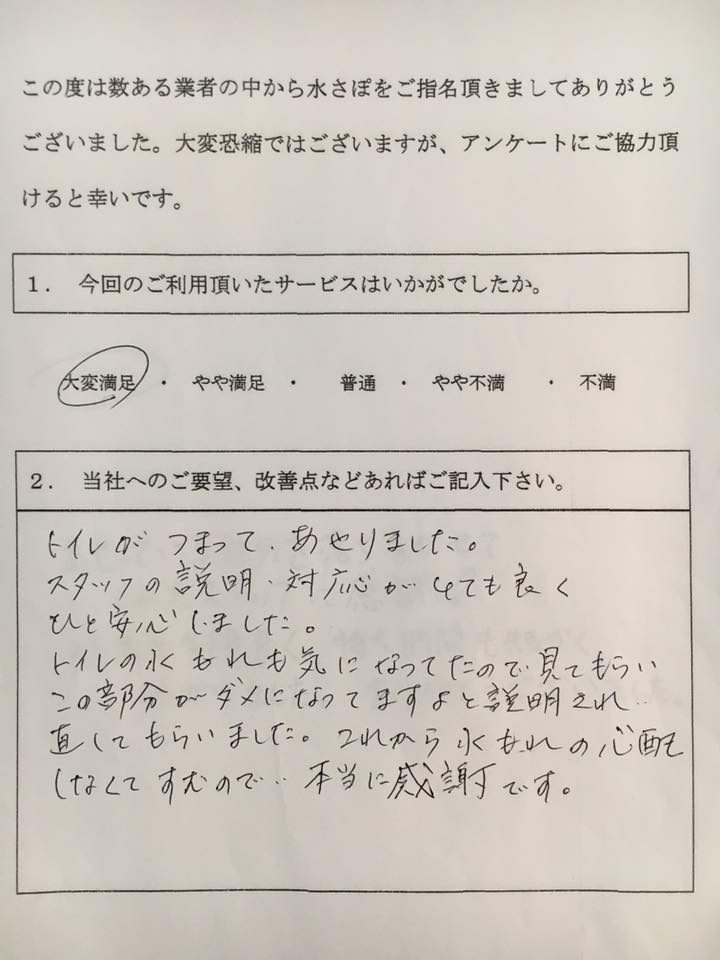 この度は数ある業者の中から水さぽをご指名頂きましてありがとう
ございました。大変恐縮ではございますが、アンケートにご協力頂
けると幸いです。
1. 今回のご利用頂いたサービスはいかがでしたか。
大変満足 ・ やや満足 ・ 普通 ・ やや不満 ・ 不満
2. 当社へのご要望、改善点などあればご記入下さい。
トイレがつまって、あせりました。
スタッフの説明・対応がとても良く
ひと安心しました。
トイレの水もれも気になってたので見てもらい
この部分がダメになってますよと説明され‥
直してもらいました。これから水もれの心配も
しなくてすむので‥本当に感謝です。